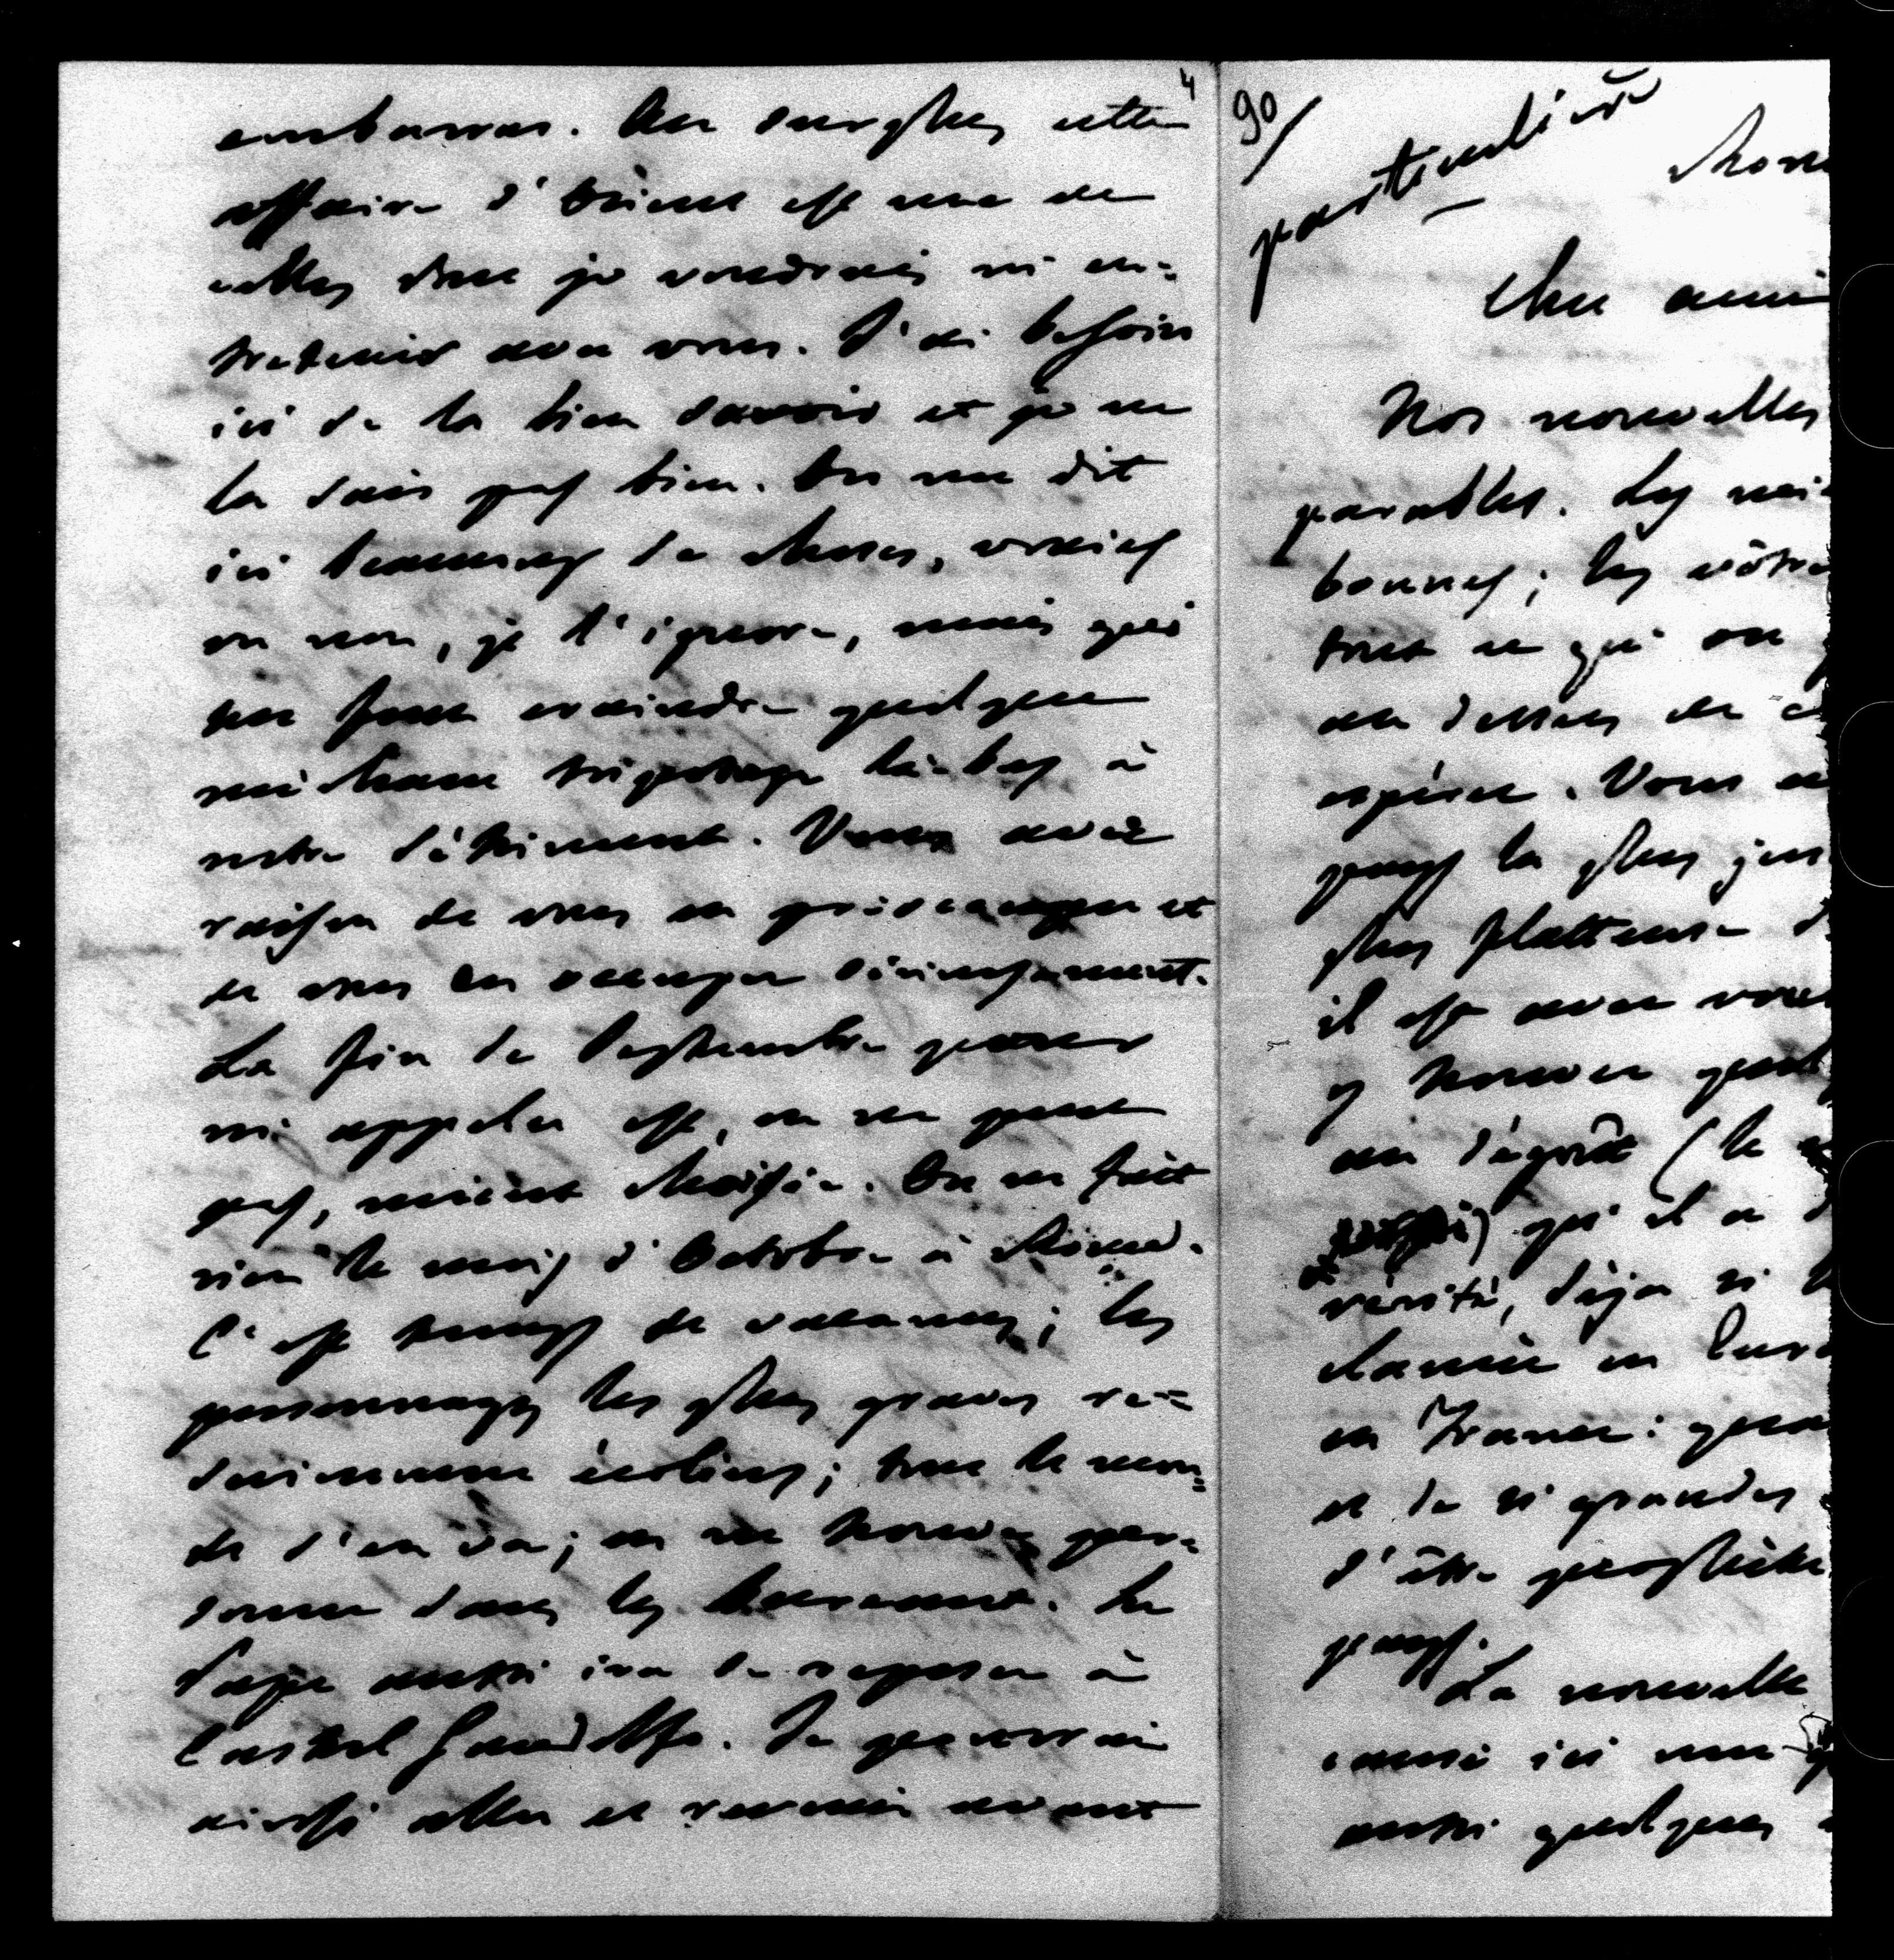 4
embarras. Au surplus cette
affaire d'Orient est une de
celles dont je voudrais m'en-
tretenir avec vous. J'ai besoin
ici de la bien savoir et je ne
la sais pas bien. On me dit
ici beaucoup de choses, vraies
ou non, je l'ignore, mais qui
me font craindre quelque
méchant tripotage là-bas à
notre détriment. Vous avez
raison de vous en préoccuper et
de vous en occuper sérieusement.
La fin de Septembre pour
m'appeler est, on ne peut
pas, mieux choisie. On ne fait
rien le mois d'Octobre à Rome.
C'est temps de vacances; les
personnages les plus graves re-
deviennent écoliers; tout le mon-
de s'en va; on ne trouve per-
sonne dans les bureaux. Le
Pape aussi ira se reposer à
Castel Gandolfo. Je pourrai
ainsi aller et revenir avant
90/
particulière
Rom
Cher ami
Nos nouvelles
parables. Les mi
bonnes; les vôtre
tout ce qui on
au dessus de ce
espérer. Vous a
pays la plus jus
plus flatteuse d
il est avec vous
y trouver quel
au dégoût (le
qu'il a
vérité, déjà si
clamée en Euro
en France: qua
et de si grandes
d'être prophète
pays.
La nouvelle
causé ici une
aussi quelques